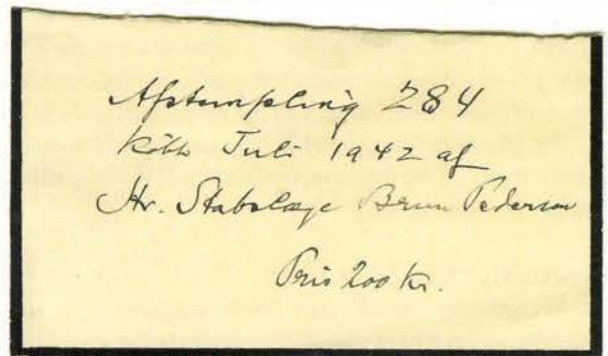 Afstempling 284
Købt Juli 1942 af
Hr. Stabslæge Brun Pedersen
Pris 200 Kr.